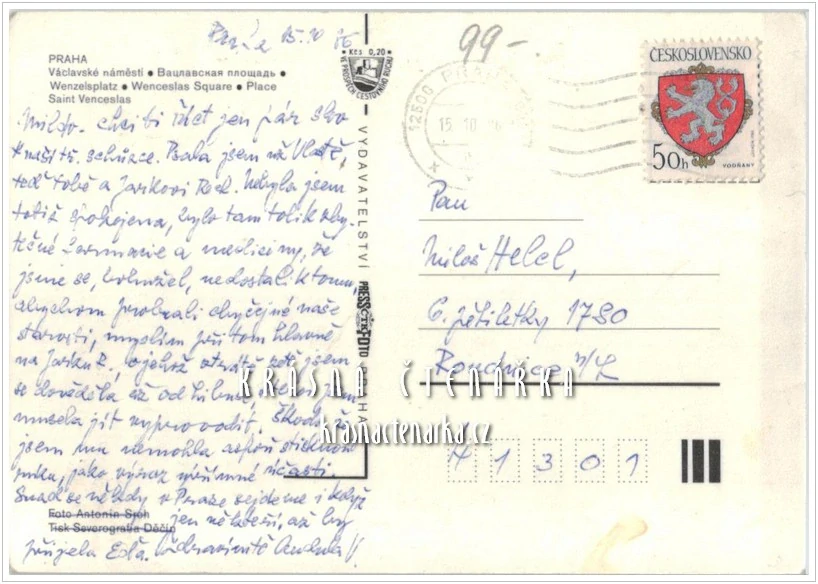 Praha 15.10 86
99-
Kčs 0,20
VE PROSPĚCH CESTOVNÍHO RUCHU
ČESKOSLOVENSKO
50h
VODŇANY
12506 PRAHA
15.10.
PRAHA
Václavské náměstí • Вацлавская площадь •
Wenzelsplatz • Wenceslas Square • Place
Saint Venceslas
chci ti říct jen pár slov
k naší schůzce. Psala jsem
teď tobě a Jarikovi Nebyla jsem
totiž spokojena, bylo tam tolik zby
tečné a medicíny, že
jsme se, bohužel, nedostali k tomu,
abychom probrali obyčejné naše
starosti, myslím při tom hlavně
na o jehož jsem
se dověděla až od
musela jít vyprovodit. Škoda, že
jsem mu nemohla aspoň stisknout
ruku, jako výraz upřímné účasti.
Snad se někdy v Praze sejdeme i když
jen až by
přijela Eda.
Foto Antonín Srch
Tisk Severografia Děčín
VYDAVATELSTVÍ PRESSFOTO PRAHA
ČTK
Pan
Miloš Helcl,
6. pětiletky 1780
Roudnice n/L
41301
KRÁSNÁ ČTENÁŘKA
krasnactenarka.cz